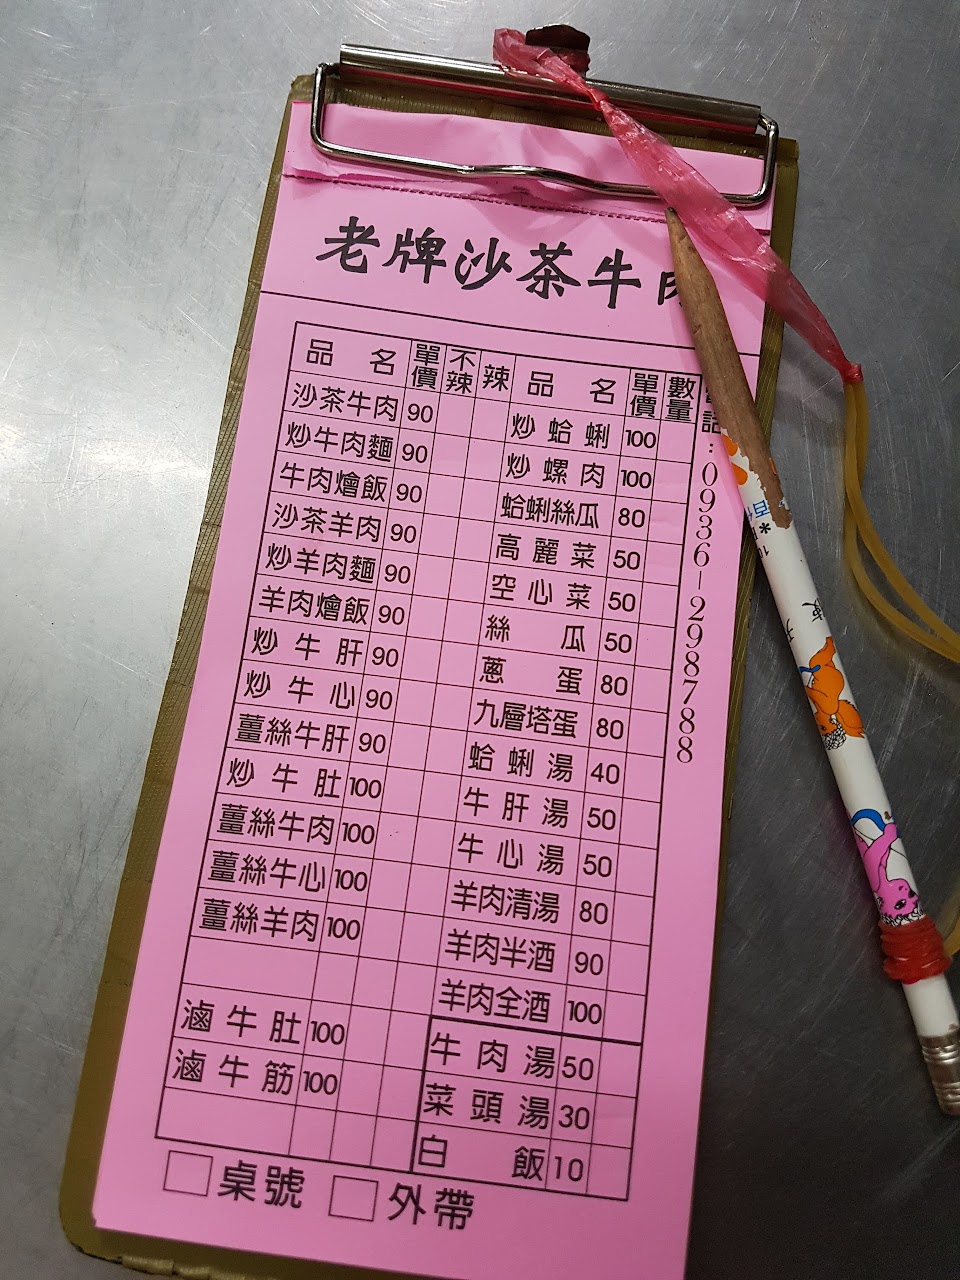 老牌沙茶牛肉
品名 單價 不辣 辣
沙茶牛肉 90
炒牛肉麵 90
牛肉燴飯 90
沙茶羊肉 90
炒羊肉麵 90
羊肉燴飯 90
炒牛肝 90
炒牛心 90
薑絲牛肝 90
炒牛肚 100
薑絲牛肉 100
薑絲牛心 100
薑絲羊肉 100
滷牛肚 100
滷牛筋 100
品名 單價 數量
炒蛤蜊 100
炒螺肉 100
蛤蜊絲瓜 80
高麗菜 50
空心菜 50
絲瓜 50
蔥蛋 80
九層塔蛋 80
蛤蜊湯 40
牛肝湯 50
牛心湯 50
羊肉清湯 80
羊肉半酒 90
羊肉全酒 100
牛肉湯 50
菜頭湯 30
白飯 10
話:0936-298788
桌號 外帶